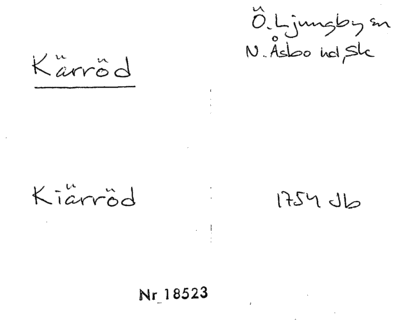 Ö. Ljungby sn
Kärröd
N. Åsbo hd, Sk
Kiärröd
1754 Jb
Nr 18523